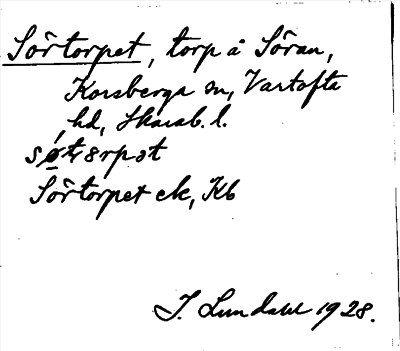 Sörtorpet, torp å Söran,
Korsberga sn, Vartofta
hd, Skarab. l.
Sörtorpet ek, Kb
I. Lundahl 1928.